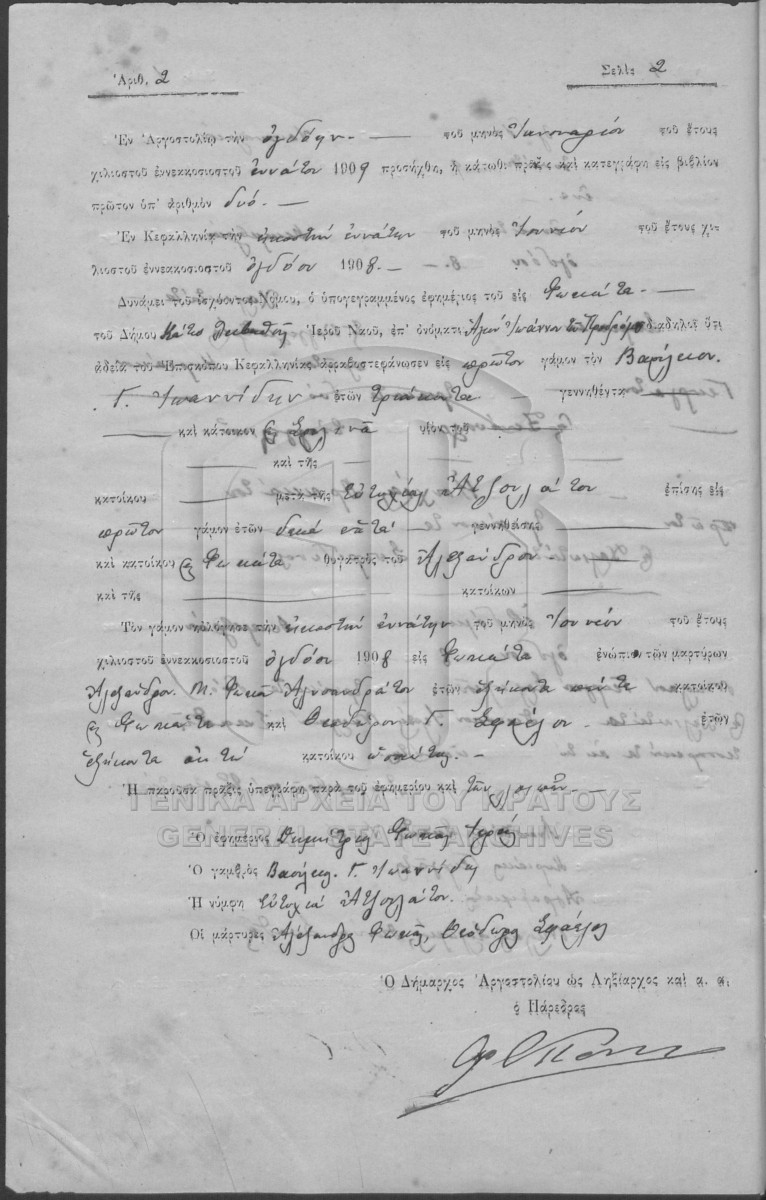 Ἀριθ. 2 Σελὶς 2
Ἐν Ἀργοστολίῳ τὴν ὀγδόην τοῦ μηνὸς Ἰανουαρίου τοῦ ἔτους
χιλιοστοῦ ἐννεακοσιοστοῦ ἐννάτου 1909 προσήχθη, ἡ κάτωθι πρᾶξις καὶ κατεγράφη εἰς βιβλίον
πρῶτον ὑπ' ἀριθμὸν δυό.
Ἐν Κεφαλληνίᾳ τὴν εἰκοστὴν ἐννάτην τοῦ μηνὸς Ἰουνίου τοῦ ἔτους χι-
λιοστοῦ ἐννεακοσιοστοῦ ὀγδόου 1908.
Δυνάμει τοῦ ἰσχύοντος Νόμου, ὁ ὑπογεγραμμένος ἐφημέριος τοῦ εἰς Φωκάτα
τοῦ Δήμου Ἱεροῦ Ναοῦ, ἐπ' ὀνόματι Ἁγίου Ἰωάννου τοῦ Προδρόμου διαδηλοῖ ὅτι
ἀδείᾳ τοῦ Ἐπισκόπου Κεφαλληνίας ἀρραβοστεφάνωσεν εἰς πρῶτον γάμον τὸν Βασίλειον
Γ. Ἰωαννίδην ἐτῶν τριάκοντα γεννηθέντα
καὶ κάτοικον υἱὸν τοῦ
καὶ τῆς
κατοίκου μετὰ τῆς Εὐτυχίας ἐπίσης εἰς
πρῶτον γάμον ἐτῶν δεκαεπτά γεννηθείσης
καὶ κατοίκου Φωκάτα θυγατρὸς τοῦ Ἀλεξάνδρου
καὶ τῆς κατοίκων
Τὸν γάμον εὐλόγησε τὴν εἰκοστὴν ἐννάτην τοῦ μηνὸς Ἰουνίου τοῦ ἔτους
χιλιοστοῦ ἐννεακοσιοστοῦ ὀγδόου 1908 εἰς Φωκάτα ἐνώπιον τῶν μαρτύρων
Ἀλεξάνδρου Μ. Φωκᾶ ἐτῶν ἑξήκοντα πέντε κατοίκου
Φωκάτα καὶ Θεοδώρου Γ. Σφαέλου ἐτῶν
ἑξήκοντα ὀκτώ κατοίκου
Ἡ παροῦσα πρᾶξις ὑπεγράφη παρὰ τοῦ ἐφημερίου καὶ τῶν λοιπῶν
ΓΕΝΙΚΑ ΑΡΧΕΙΑ ΤΟΥ ΚΡΑΤΟΥΣ
GENERAL STATE ARCHIVES
Ὁ ἐφημέριος Δημήτριος Φωκᾶς Ἱερεύς
Ὁ γαμβρὸς Βασίλειος Γ. Ἰωαννίδης
Ἡ νύμφη Εὐτυχία
Οἱ μάρτυρες Ἀλέξανδρος Φωκᾶς, Θεόδωρος Σφαέλος
Ὁ Δήμαρχος Ἀργοστολίου ὡς Ληξίαρχος καὶ ἀ. ἀ.
ὁ Πάρεδρος